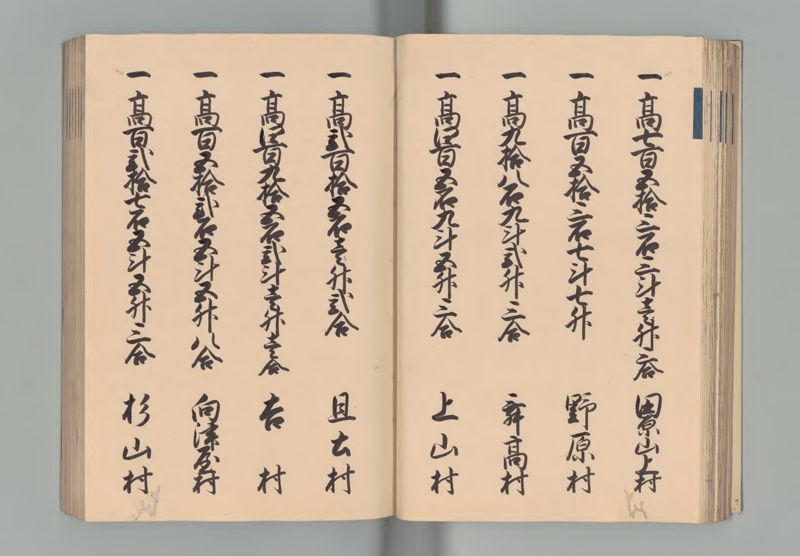 一 高七百五拾三石三斗壱升六合 山上村
一 高百五拾三石七斗七升 野原村
一 高九拾八石九斗弐升三合 舞高村
一 高四百五石九斗五升三合 上山村
一 高弐百拾五石壱升弐合 村
一 高四百九拾五石弐斗壱升壱合 吉村
一 高百五拾弐石五斗五升八合 向津屋村
一 高百弐拾七石五斗五升三合 杉山村